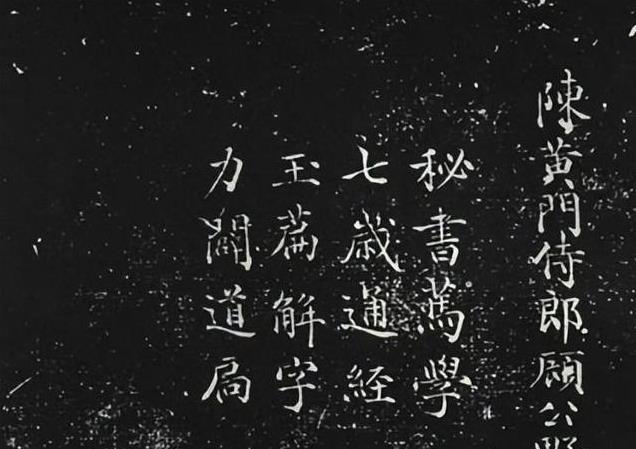 陳黄門侍郎顧公野
秘書篤學
七歲通経
玉篇解字
力闢道扃